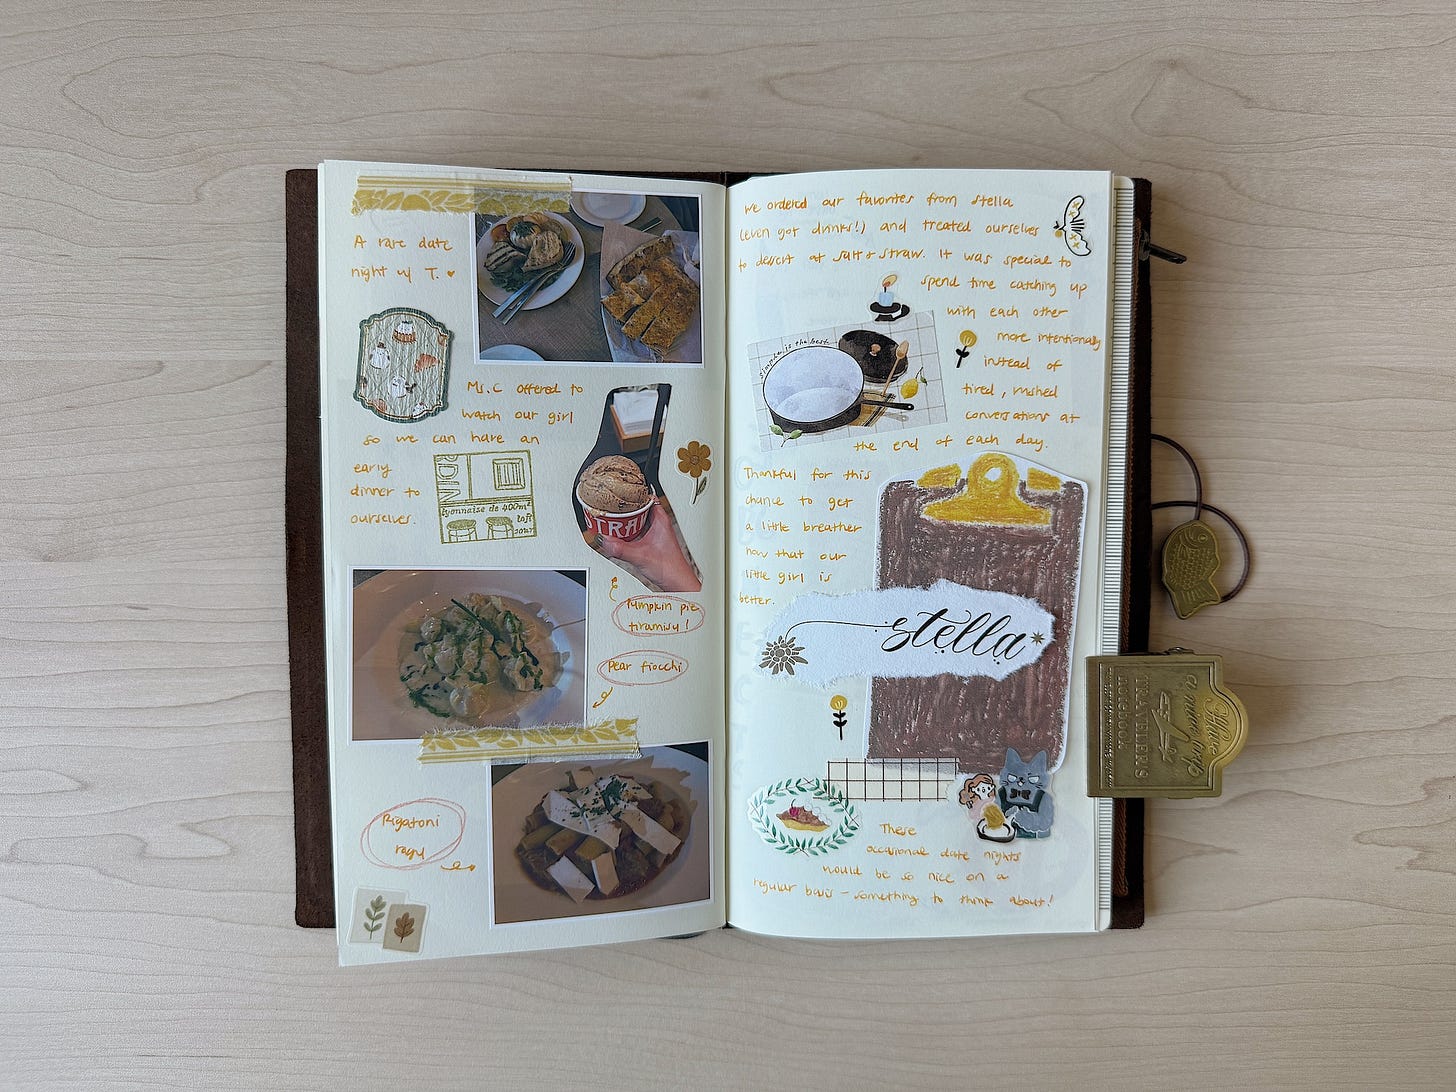 A rare date
night w/ T. ♥
Ms. C offered to
watch our girl
so we can have an
early
dinner to
ourselves.
lyonnaise de 400m²
loft
sour
STRAW
Pumpkin pie
tiramisu!
Pear fiocchi
Rigatoni
ragu
We ordered our favorites from Stella
(even got drinks!) and treated ourselves
to dessert at Salt & Straw. It was special to
spend time catching up
with each other
more intentionally
instead of
tired, rushed
conversations at
the end of each day.
simple is the best.
Thankful for this
chance to get
a little breather
now that our
little girl is
better.
stella
These
occasional date nights
would be so nice on a
regular basis – something to think about!
TRAVELER'S
notebook